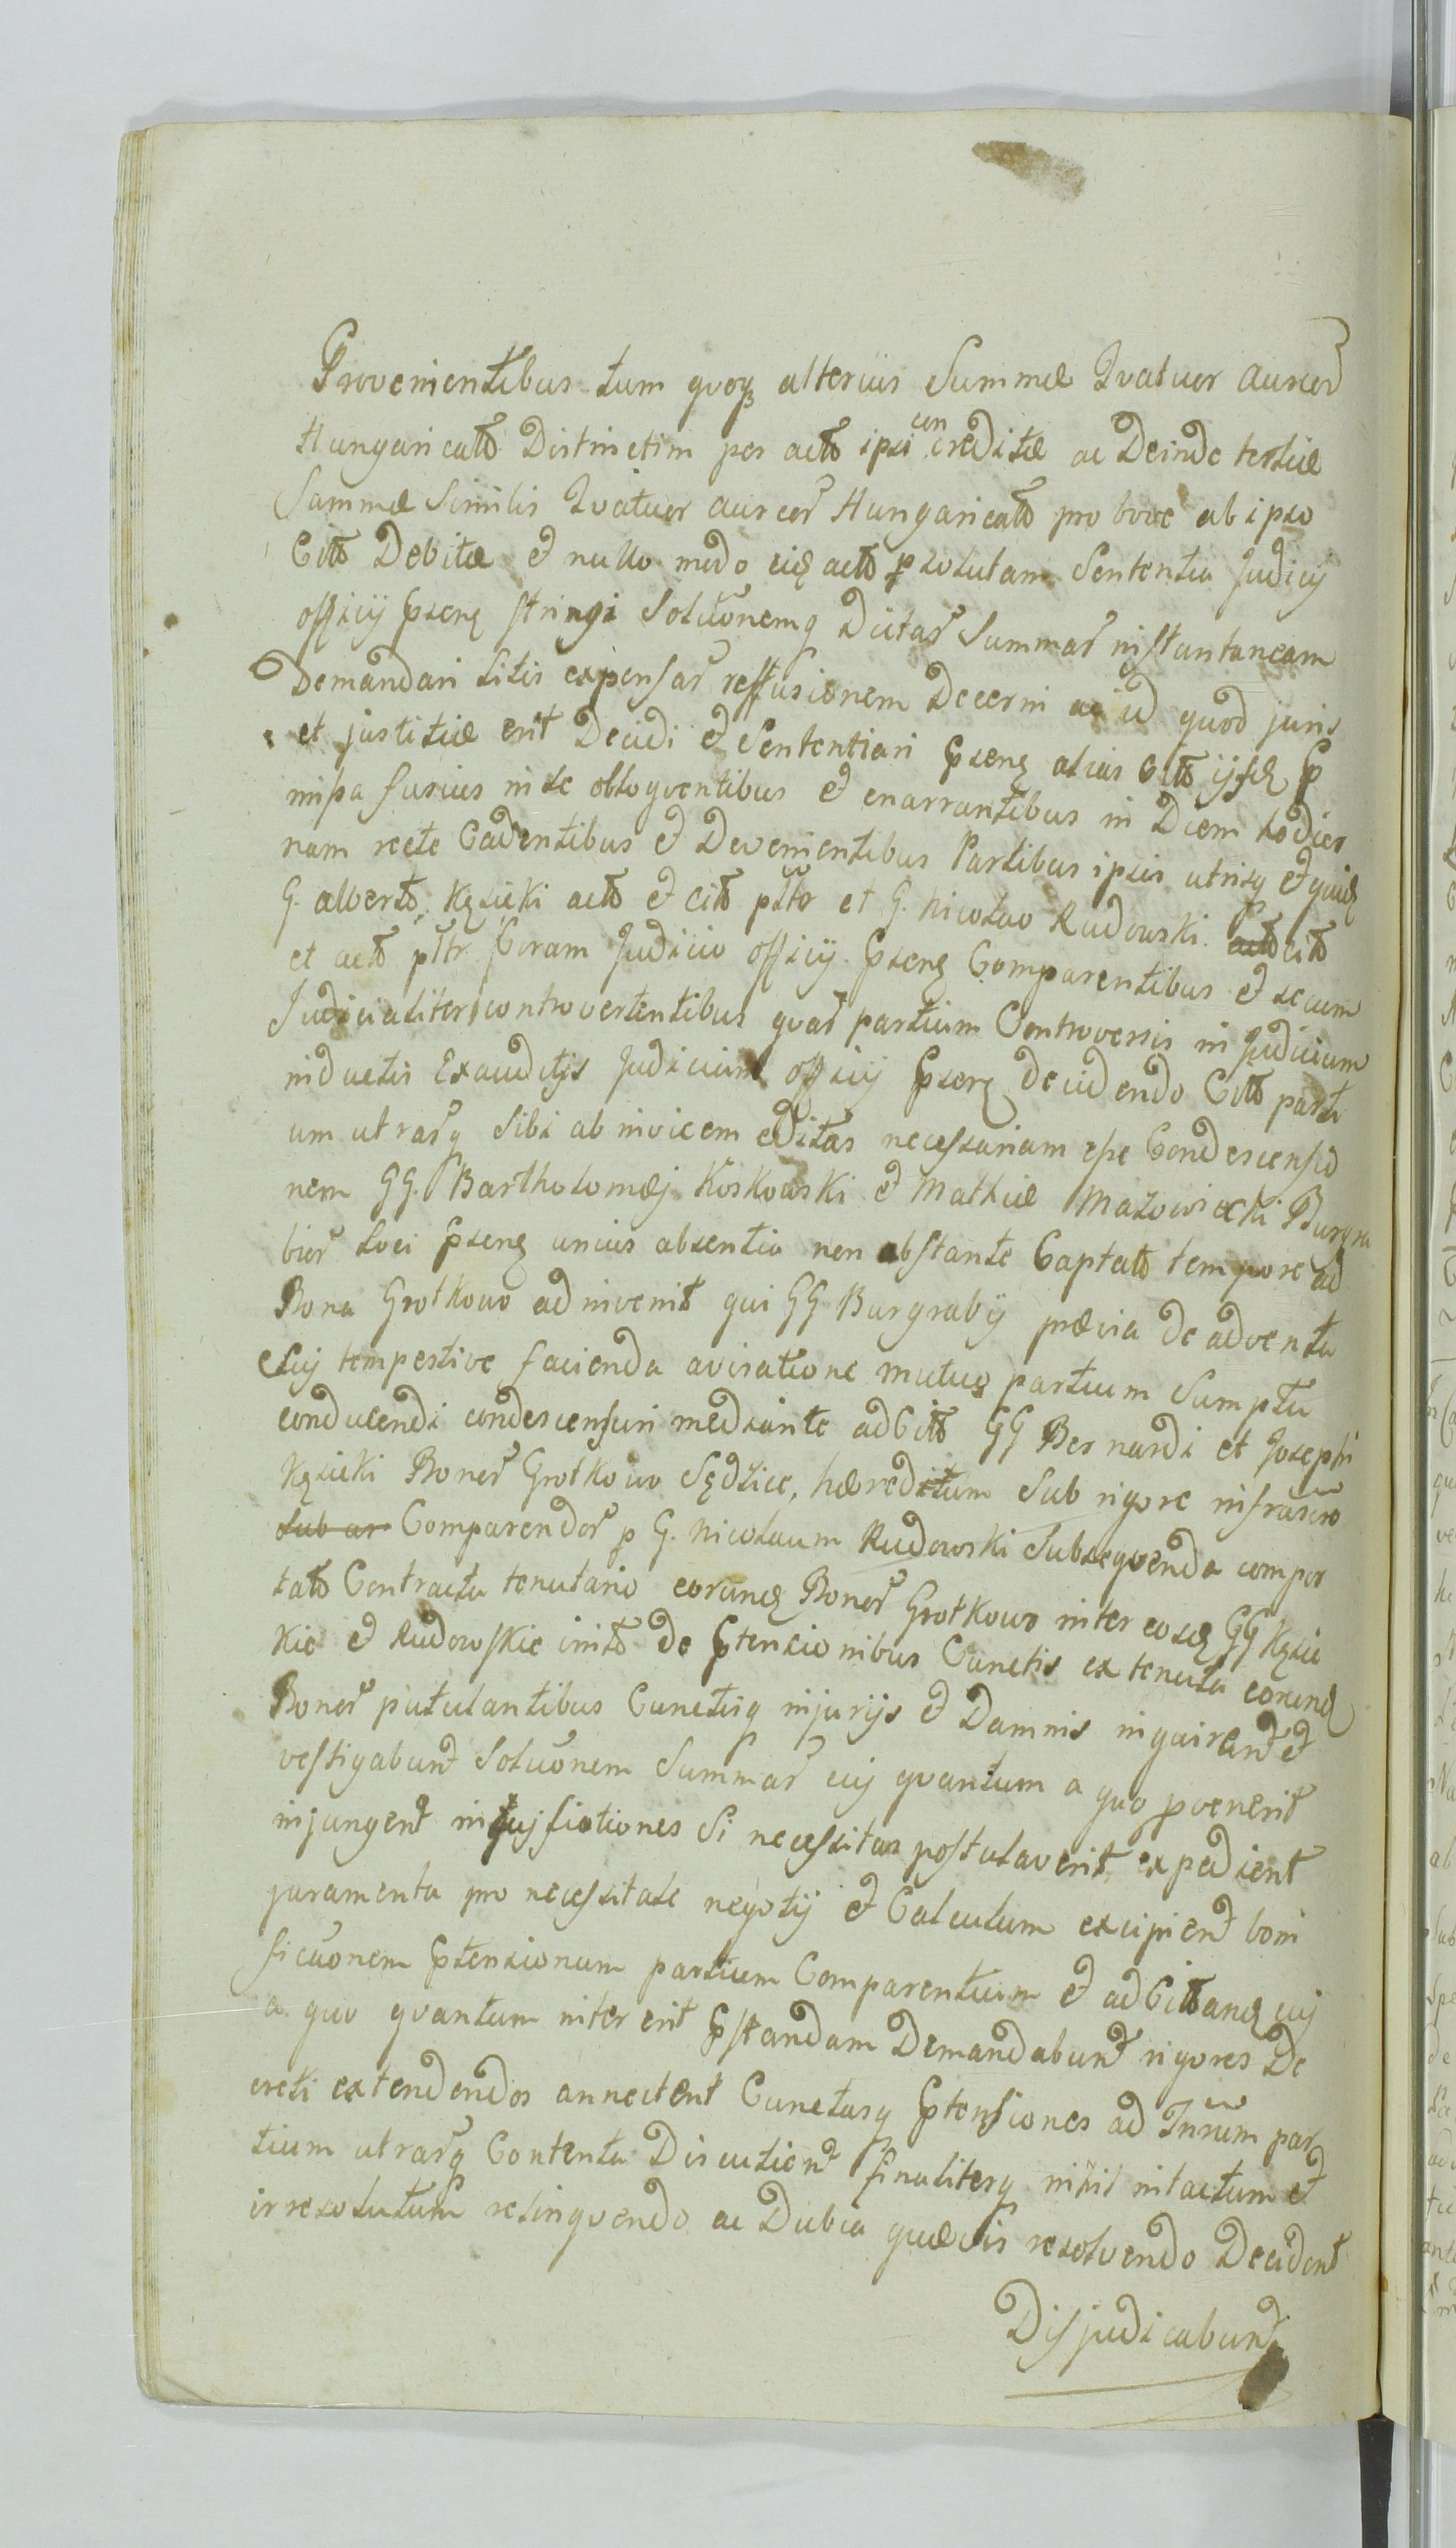 Provenientibus tum qvoq alterius Summæ Qvatuor aureor
Hungaricalt Distinctim per actt ipsi concreditæ ac Deinde tertiæ
Summæ Similis Qvatuor aureor Hungaricalt pro bove ab ipso
Citt Debitæ et nullo modo eid actt psolutam Sententia Judicij
officij Pseng stringi Solutionemq Dictar Summar instantaneam
Demandari Litis expensar reffusionem Decerni ac id quod juris
et justitiæ erit Decidi et Sententiari Pseng alias Citt ijsd P
missa fusius in se obloqventibus et enarrantibus in Diem hodier
nam recte Cadentibus et Devenientibus Partibus ipsis utrisq et quid
G. Albertt Kęsicki actt et citt psttr et G. Nicolao Rudowski actt citt
et actt psttr Coram Judicio officij Pseng Comparentibus et secum
Judicialiter controvertentibus qvar partium Controversis in Judicium
inductis Exauditijs Judicium officij Pseng decidendo Citt parti
um utrarq Sibi ab invicem editas necessariam esse Condescensio
nem GG. Bartholomæj Koskowski et Mathiæ Mazowiecki Burgra
bior Loci Pseng unius absentia non obstante Captatt tempore ad
Bona Grotkowo adinvenit qui GG Burgrabij prævia de adventu
Suj tempestive facienda avisatione mutuo partium Sumptu
conducendi condescensuri mediante adCitt GG Bernardi et Josephi
Kęsicki Bonor Grotkowo Sędzice, hæreditum Sub rigore infrascro
sub ar Comparendor p G. Nicolaum Rudowski Subseqvenda compor
tatt Contractu tenutario eorund Bonor Grotkowo inter eosd GG Kęsic
kie et Rudowskie initt de Ptensionibus Cunctis ex tenuta eorund
Bonor pütulantibus Cunctisq injurijs et Damnis inquirent et
vestigabunt Solutionem Summar cuj qvantum a quo pvenerit
injungent inqujsitiones Si necessitas postulaverit expedient
juramenta pro necessitate negotij et Calculum excipient boni
ficationem Ptensionum partium Comparentium et adCittand cuj
a quo qvantum inter erit Pstandam Demandabunt rigores De
creti extendendos annectent Cunctasq Ptensiones ad Inrum par
tium utrarq Contenta Discutient finaliterq nihil intactum et
irresolutum relinqvendo ac Dubia quævis resolvendo Decident
Disjudicabunt